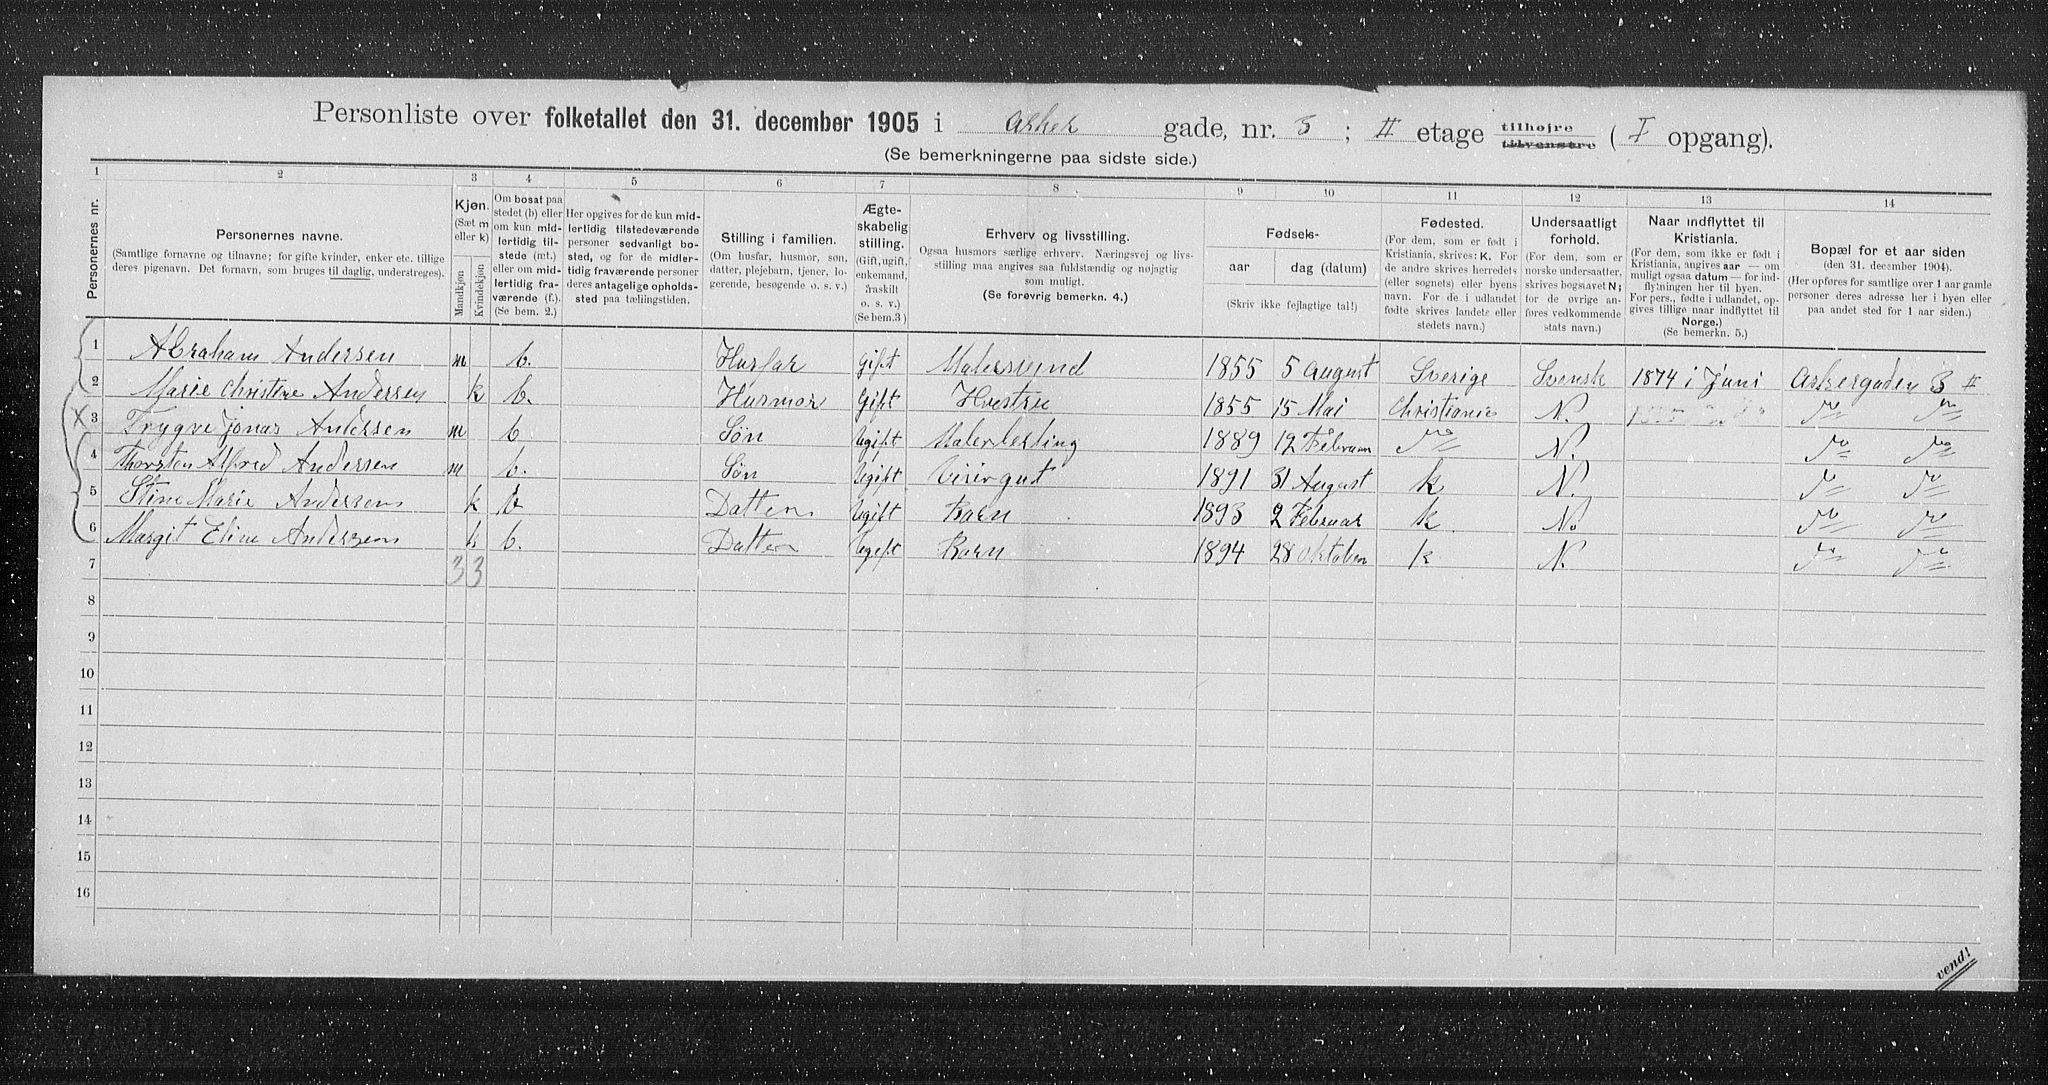 Personliste over folketallet den 31. december 1905 i Asker gade, nr. 3; II etage tilhøjre tilvenstre (I opgang).
(Se bemerkningerne paa sidste side.)
1 2 3 4 5 6 7 8 9 10 11 12 13 14
Personernes nr.
Personernes navne.
(Samtlige fornavne og tilnavne; for gifte kvinder, enker etc. tillige
deres pigenavn. Det fornavn, som bruges til daglig, understreges).
Kjøn.
(Sæt m
eller k)
Mandkjøn
Kvindekjøn
Om bosat paa
stedet (b) eller
om kun mid-
lertidig til-
stede (mt.)
eller om mid-
lertidig fra-
værende (f.)
(Se bem. 2.)
Her opgives for de kun mid-
lertidig tilstedeværende
personer sedvanligt bo-
sted, og for de midler-
tidig fraværende personer
deres antagelige opholds-
sted paa tællingstiden.
Stilling i familien.
(Om husfar, husmor, søn,
datter, plejebarn, tjener, lo-
gerende, besøgende o. s. v.)
Ægte-
skabelig
stilling.
(Gift, ugift,
enkemand,
fraskilt
o. s. v.)
(Se bem.3)
Erhverv og livsstilling.
Ogsaa husmors særlige erhverv. Næringsvej og livs-
stilling maa angives saa fuldstændig og nøjagtig
som muligt.
(Se forøvrig bemerkn. 4.)
Fødsels-
aar dag (datum)
(Skriv ikke fejlagtige tal!)
Fødested.
(For dem, som er født i
Kristiania, skrives: K. For
de andre skrives herredets
(eller sognets) eller byens
navn. For de i udlandet
fødte skrives landets eller
stedets navn.)
Undersaatligt
forhold.
(For dem, som er
norske undersaatter,
skrives bogsavet N;
for de øvrige an-
føres vedkommende
stats navn.)
Naar indflyttet til
Kristiania.
(For dem, som ikke er født i
Kristiania, angives aar — om
muligt ogsaa datum — for ind-
flytningen her til byen.
For pers., fødte i udlandet, op-
gives tillige naar indflyttet til
Norge.)
(Se bemerkn. 5.)
Bopæl for et aar siden
(den 31. december 1904).
(Her opføres for samtlige over 1 aar gamle
personer deres adresse her i byen eller
paa andet sted for 1 aar siden.)
1 Abraham Andersen m b. Husfar Gift Malersvend 1855 5 August Sverige Svensk 1874 i Juni Askergaden 3 II
2 Marie Christine Andersen k b. Husmor Gift Hustru 1855 15 Mai Christiania N. Do Do
X 3 Trygve Jonas Andersen m b Søn Ugift Malerlerling 1889 12 Februar Do N. Do Do
4 Thorsten Alfred Andersen m b. Søn Ugift Visergut 1891 31 August k N. Do Do
5 Stine Marie Andersen k b Datter Ugift Barn 1893 2 Februar k N. Do Do
6 Margit Eline Andersen k b. Datter Ugift Barn 1894 28 Oktober k N. Do Do
7 3 3
8
9
10
11
12
13
14
15
16
vend!